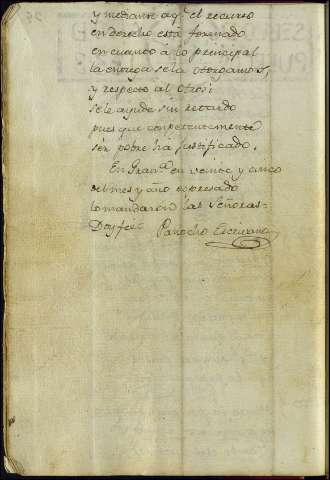 y mediante a q.e el recurso
en derecho está formado
en cuanto á lo principal
la entrega se la otorgamos,
y respecto al otrosi
se le ayude sin retardo
pues que competentemente
ser pobre há justificado.
En Gran.a en veinte y cinco
del mes y año expresado
lo mandaron las Señoras-
Doy fee Escrivano